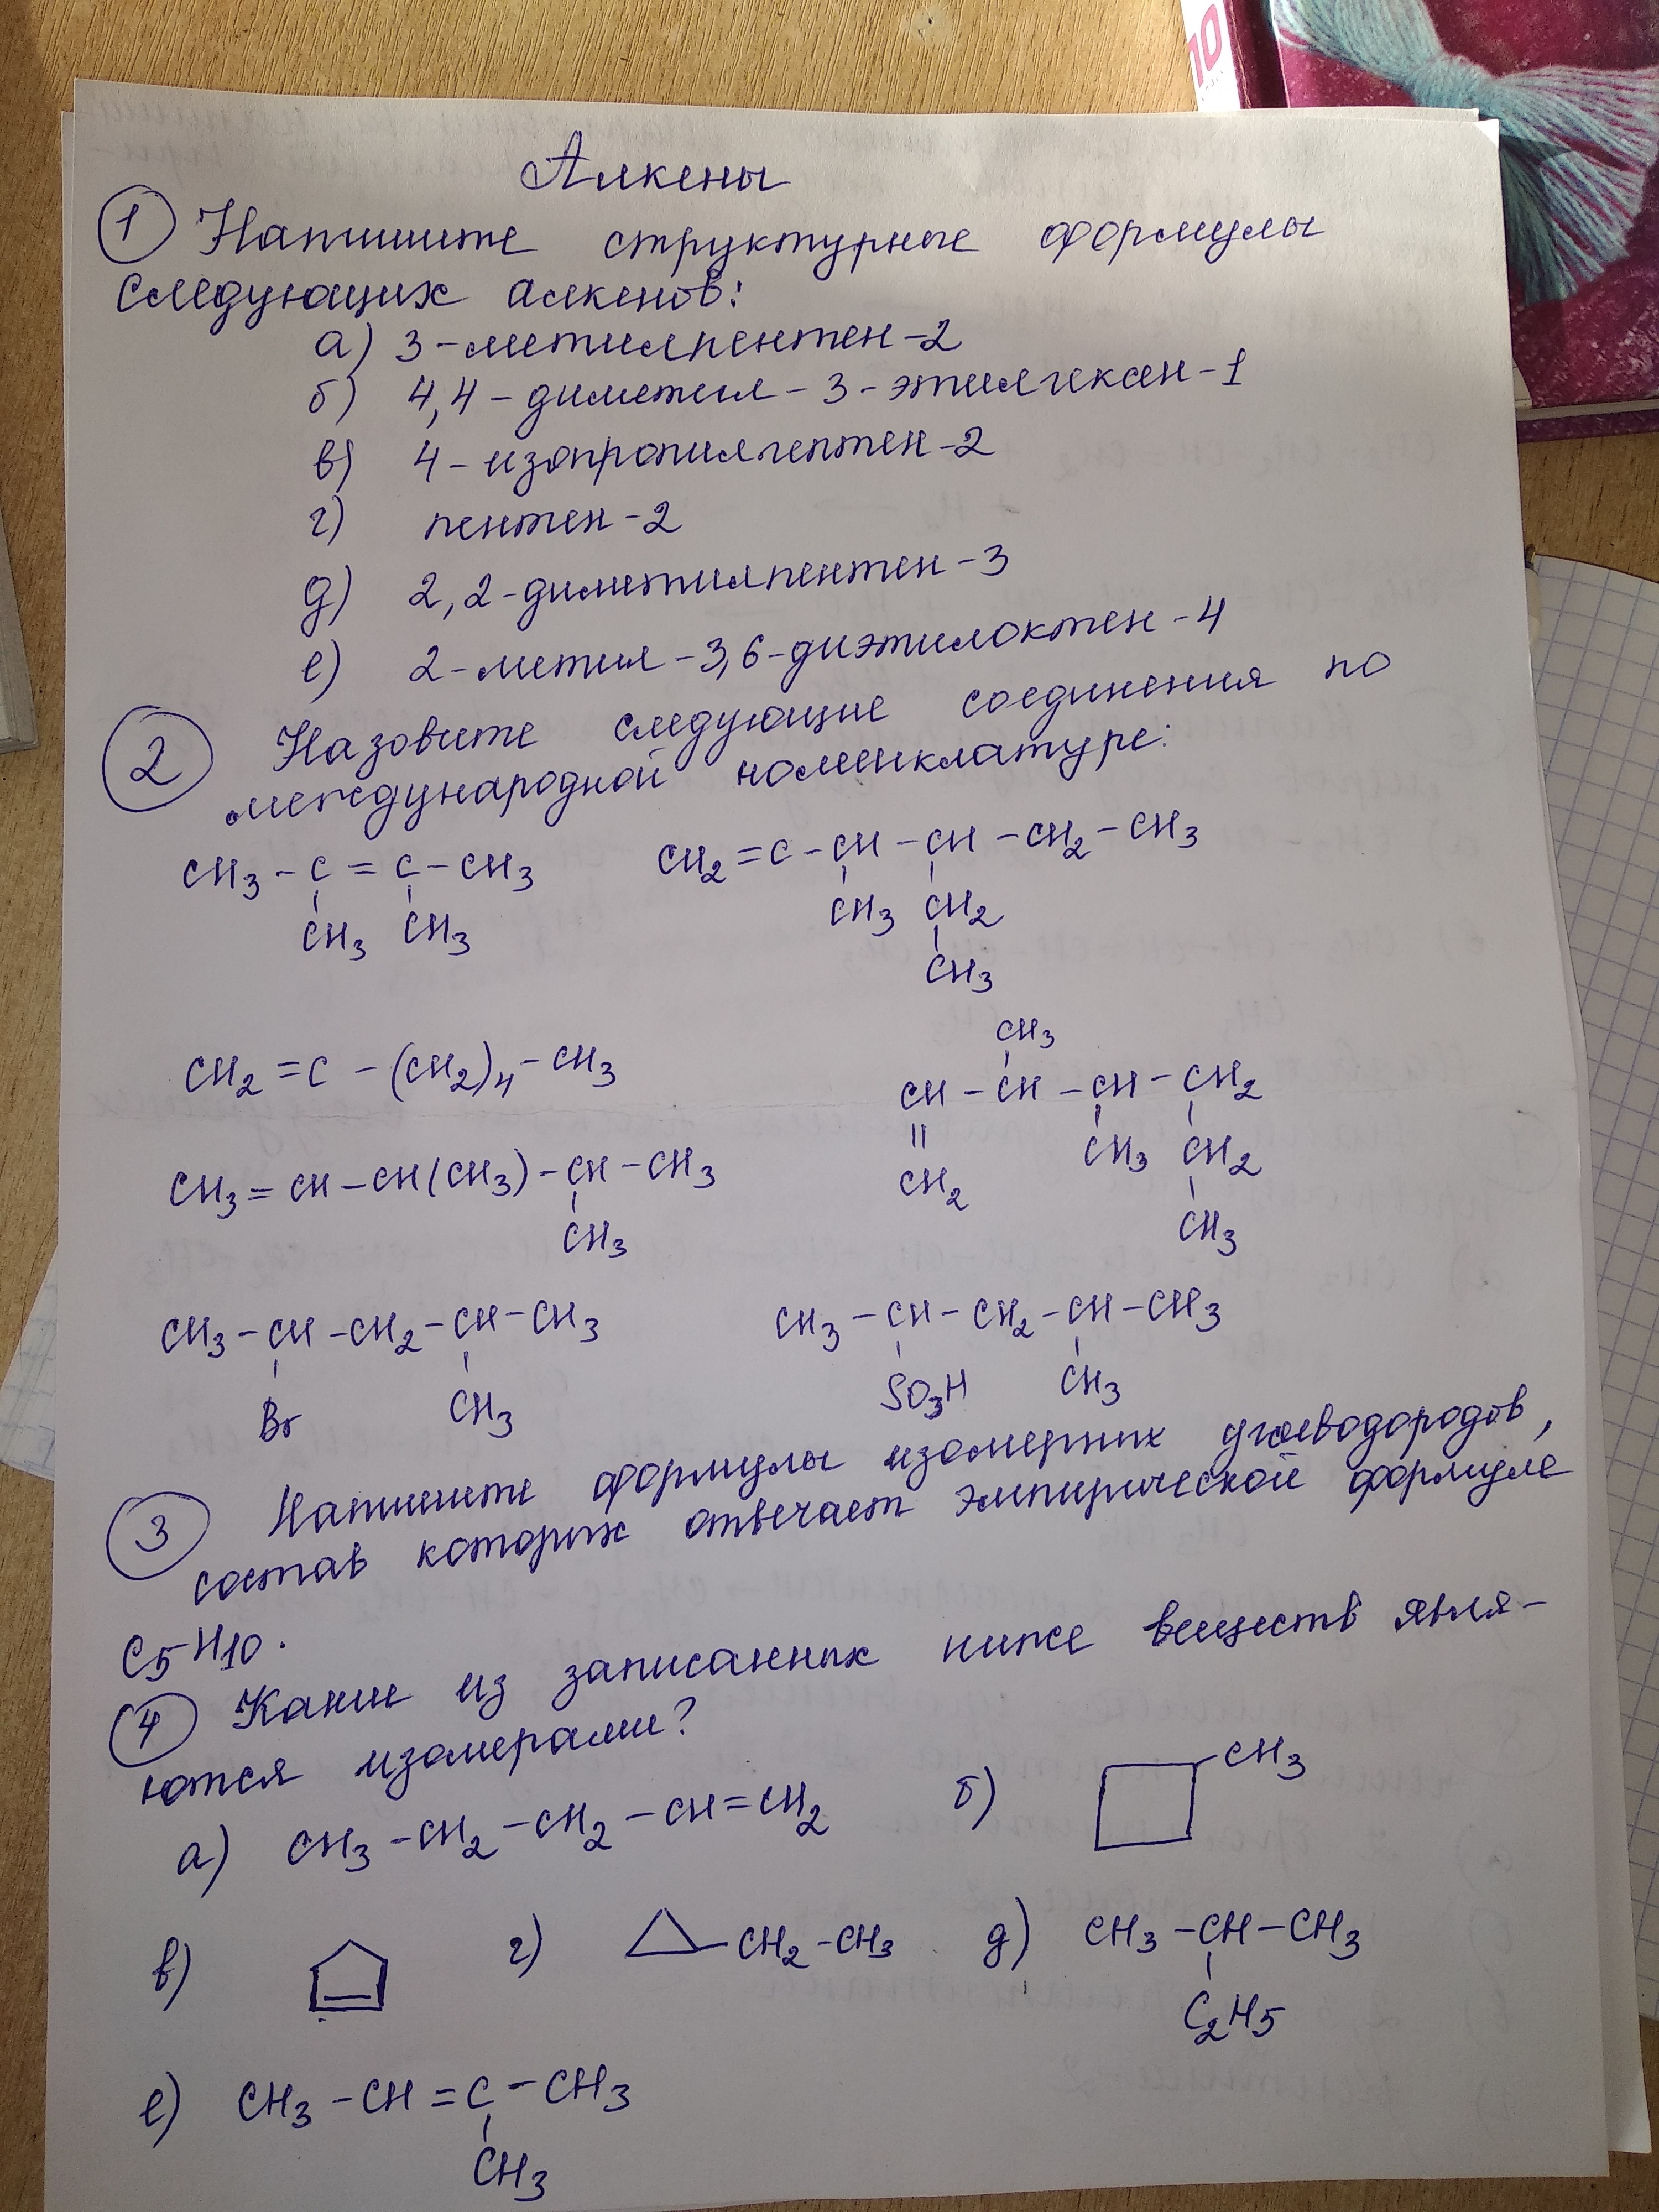 10
Алкены
1 Напишите структурные формулы
следующих алкенов:
а) 3-метилпентен-2
б) 4,4-диметил-3-этилгексен-1
в) 4-изопропилгептен-2
г) пентен-2
д) 2,2-диметилпентен-3
е) 2-метил-3,6-диэтилоктен-4
2 Назовите следующие соединения по
международной номенклатуре:
CH3-C=C-CH3
CH3 CH3
CH2=C-CH-CH-CH2-CH3
CH3 CH2
CH3
CH2=C-(CH2)4-CH3
CH3
CH-CH-CH-CH2
CH3 CH2
CH2
CH3
CH3=CH-CH(CH3)-CH-CH3
CH3
CH3-CH-CH2-CH-CH3
Br CH3
CH3-CH-CH2-CH-CH3
SO3H CH3
3 Напишите формулы изомерных углеводородов,
состав которых отвечает эмпирической формуле
C5H10.
4 Какие из записанных ниже веществ явля-
ются изомерами?
а) CH3-CH2-CH2-CH=CH2
б) CH3
в)
г) CH2-CH3
д) CH3-CH-CH3
C2H5
е) CH3-CH=C-CH3
CH3